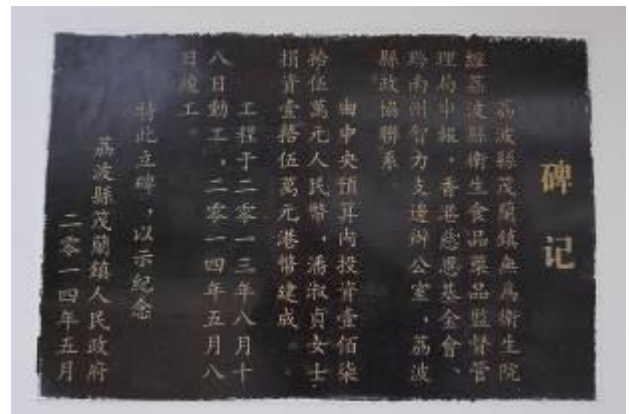 碑记
荔波縣茂蘭鎮無爲衛生院
經荔波縣衛生食品藥品監督管
理局申報，香港慈恩基金會、
黔南州智力支邊辦公室，荔波
縣政協聯系。
由中央預算內投資壹佰柒
拾伍萬元人民幣，潘淑貞女士
捐資壹拾伍萬元港幣建成。
工程于二零一三年八月十
八日動工，二零一四年五月八
日竣工。
特此立碑，以示紀念
荔波縣茂蘭鎮人民政府
二零一四年五月